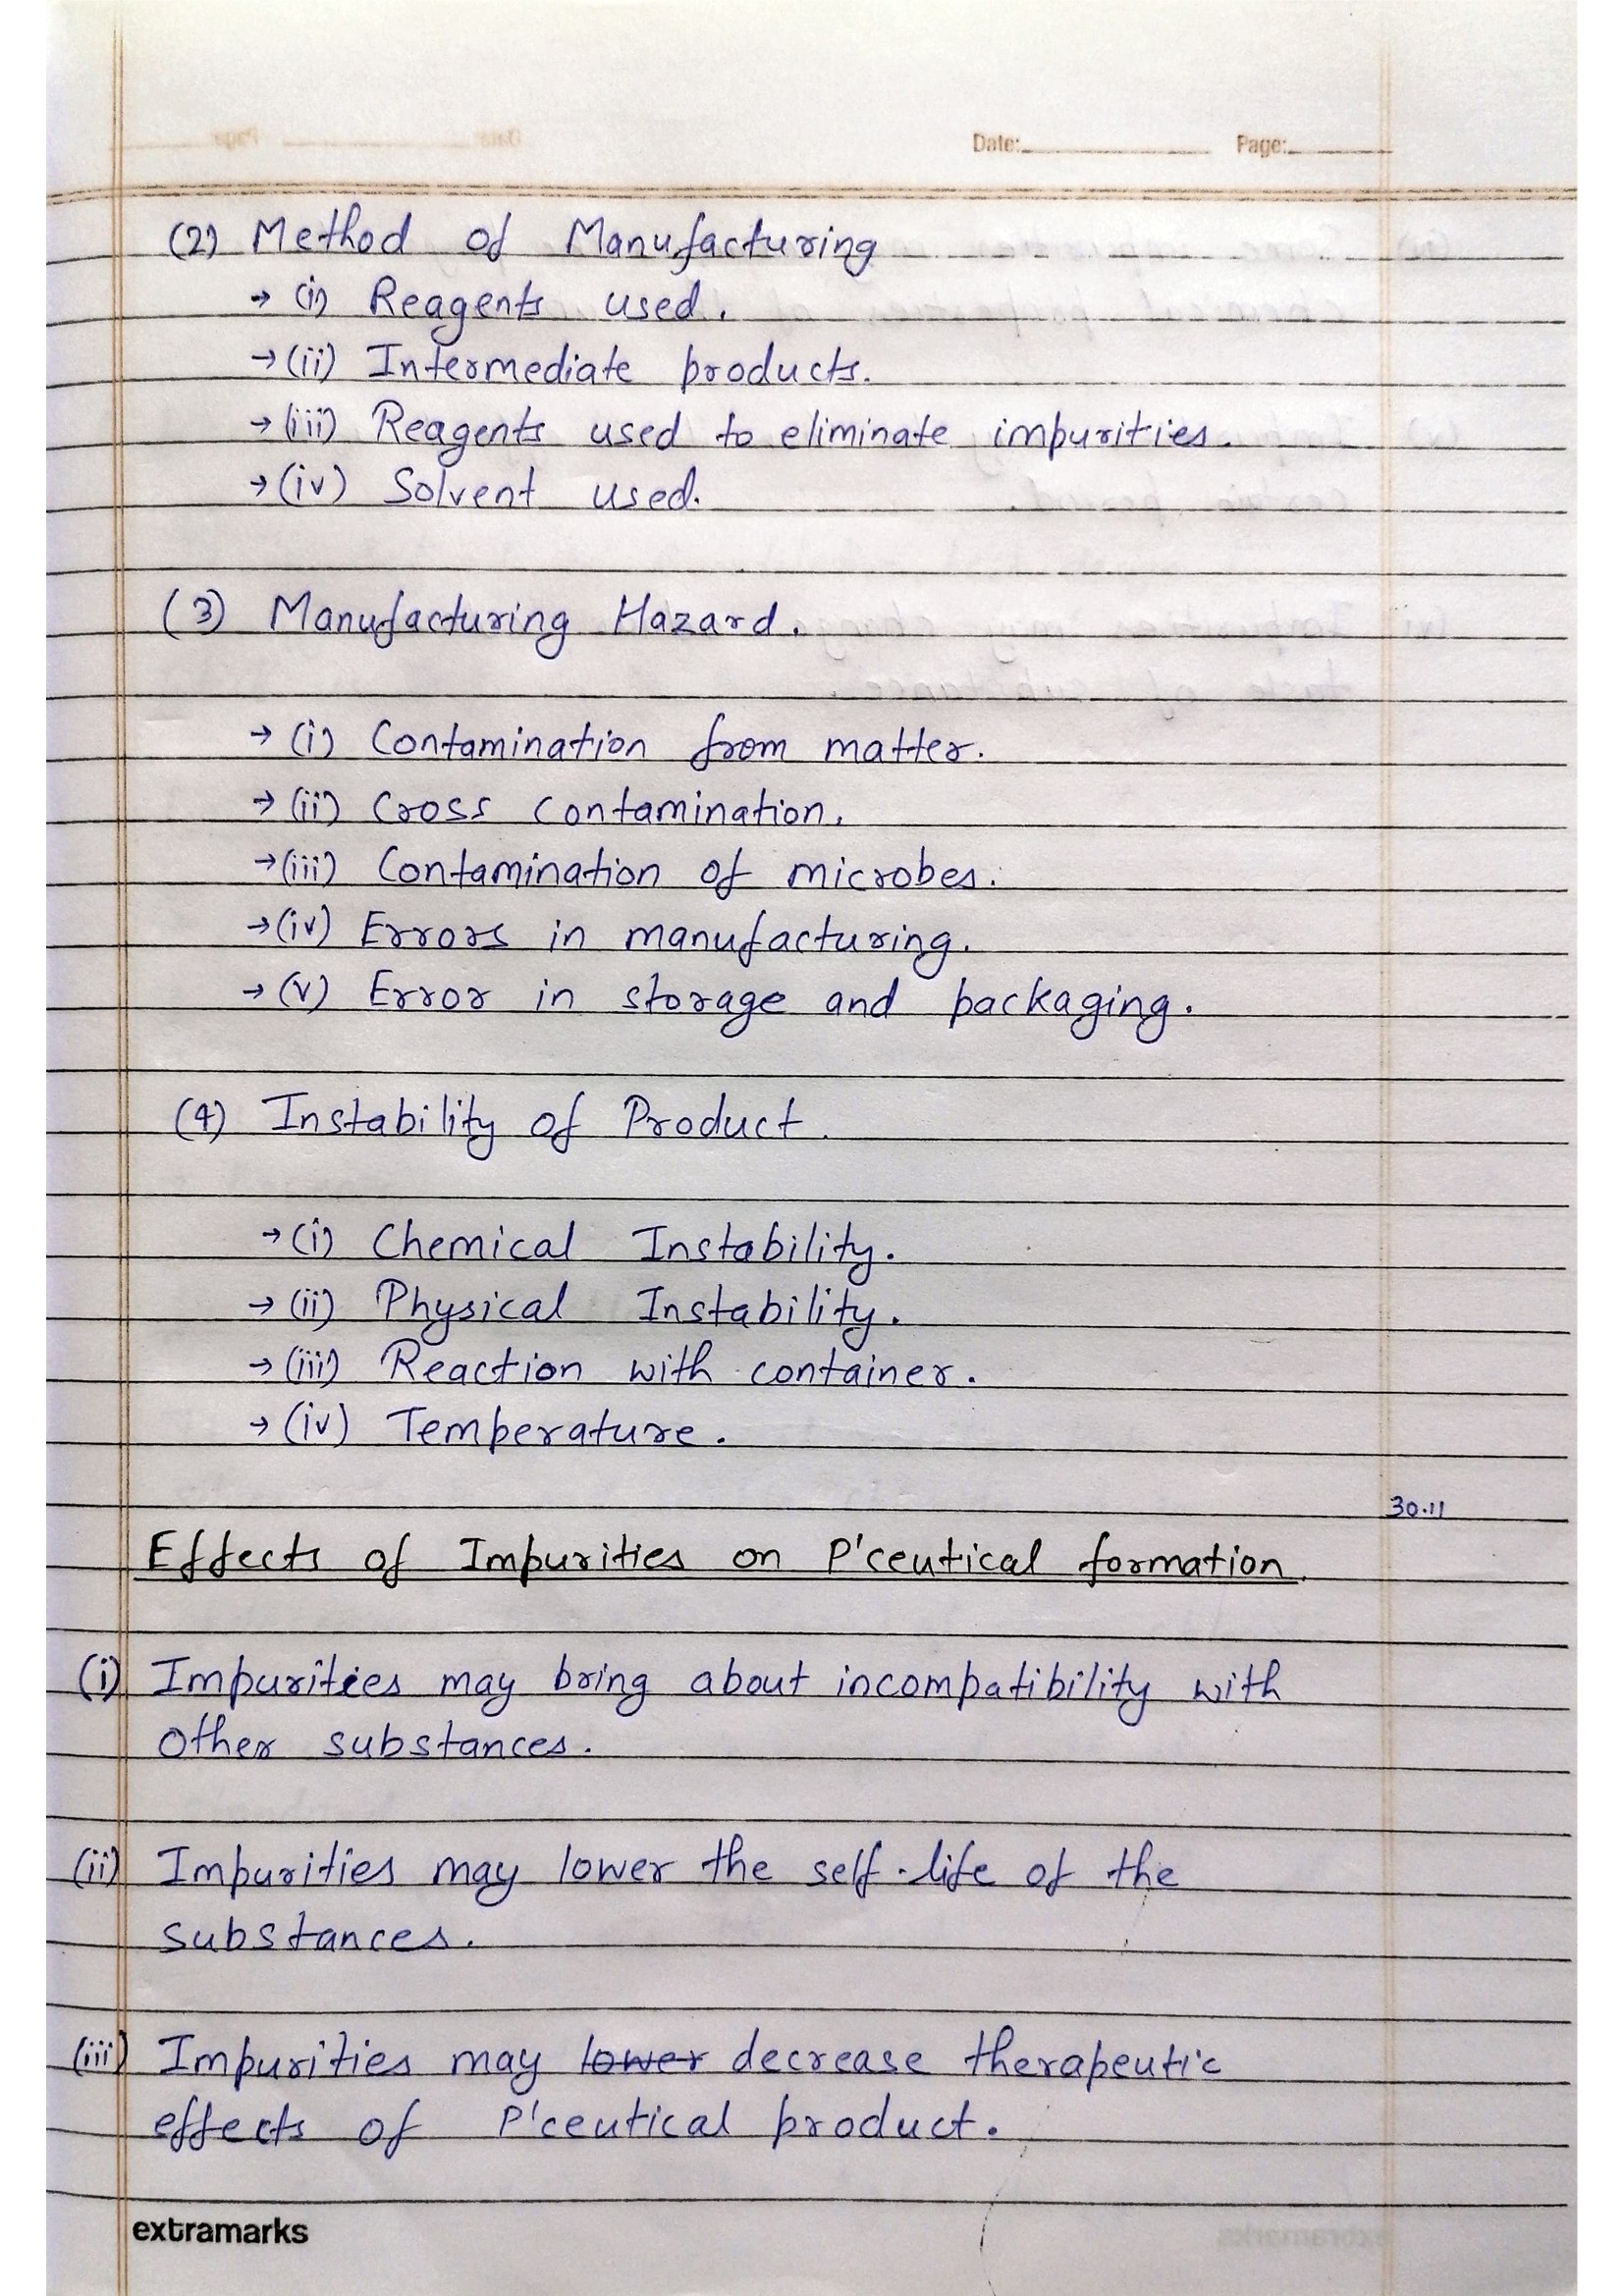 Date: Page:
(2) Method of Manufacturing
→ (i) Reagents used.
→ (ii) Intermediate products.
→ (iii) Reagents used to eliminate impurities.
→ (iv) Solvent used.
(3) Manufacturing Hazard.
→ (i) Contamination from matter.
→ (ii) Cross contamination.
→ (iii) Contamination of microbes.
→ (iv) Errors in manufacturing.
→ (v) Error in storage and packaging.
(4) Instability of Product.
→ (i) Chemical Instability.
→ (ii) Physical Instability.
→ (iii) Reaction with container.
→ (iv) Temperature.
30.11
Effects of Impurities on P'ceutical formation.
(i) Impurities may bring about incompatibility with
other substances.
(ii) Impurities may lower the self-life of the
substances.
(iii) Impurities may lower decrease therapeutic
effects of P'ceutical product.
extramarks